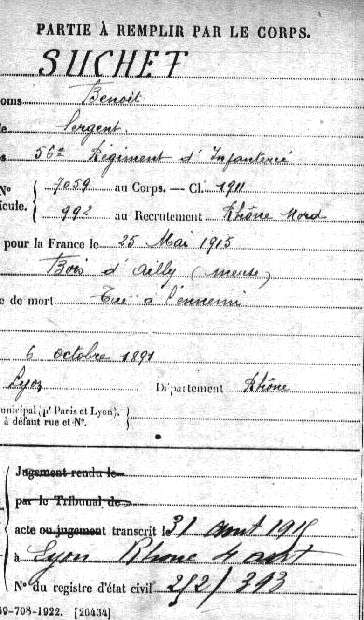 PARTIE À REMPLIR PAR LE CORPS.
SUCHET
oms Benoit
e Sergent
s 56e Régiment d'Infanterie
N° 7059 au Corps. — Cl. 1911
icule. 992 au Recrutement Rhône Nord
pour la France le 25 Mai 1915
Bois d'Ailly (Meuse)
e de mort Tué à l'ennemi
6 octobre 1891
Lyon Département Rhône
unicipal (pr Paris et Lyon),
à défaut rue et N°.
Jugement rendu le
par le Tribunal de
acte ou jugement transcrit le 31 août 1915
à Lyon Rhône
N° du registre d'état civil 2/2/393
49-708-1922. [26434]